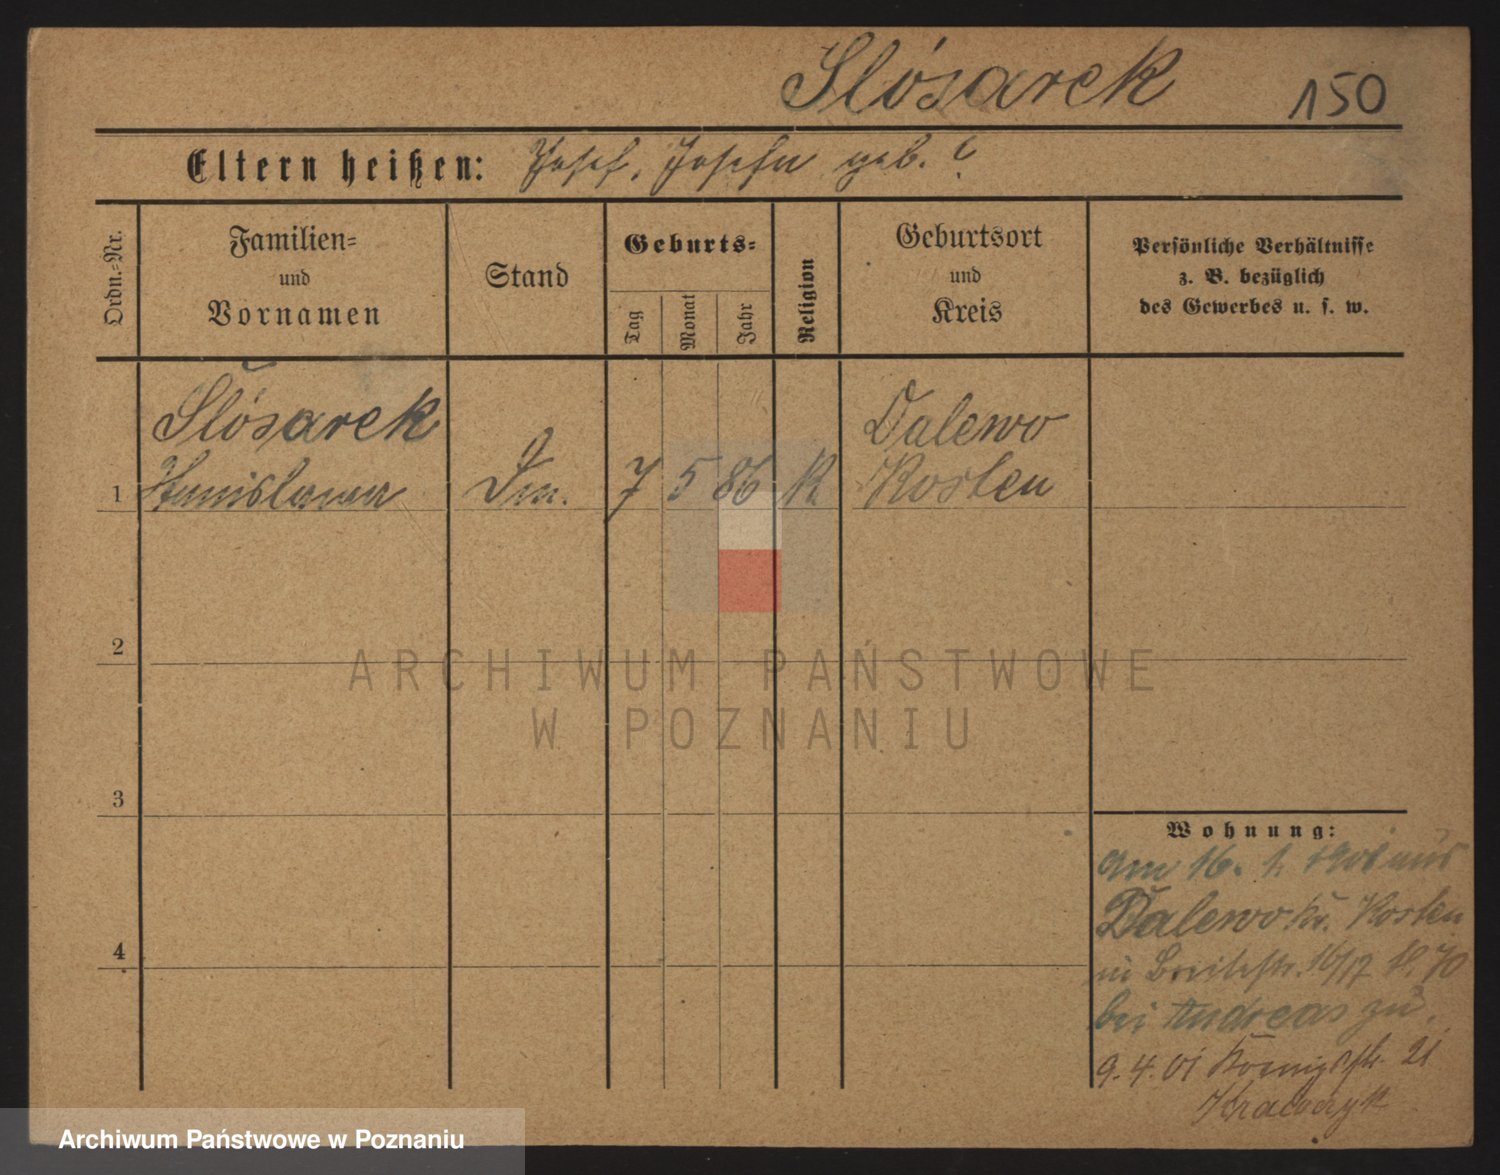 Slósarek 150
Eltern heißen: Josef, Josefa geb. ?
Ordn.-Nr.
Familien-
und
Vornamen
Stand
Geburts-
Tag
Monat
Jahr
Religion
Geburtsort
und
Kreis
Persönliche Verhältnisse
z. B. bezüglich
des Gewerbes u. s. w.
Slósarek Dalewo
1 Stanislawa Dm. 7 5 86 K Kosten
2
ARCHIWUM PAŃSTWOWE
W POZNANIU
3
4
Wohnung:
am 16. 1. aus
Dalewo Kr. Kosten
in Breitestr. 16/17
bei Andreas zu.
9.4.01 Königstr. 21
Krawczyk
Archiwum Państwowe w Poznaniu